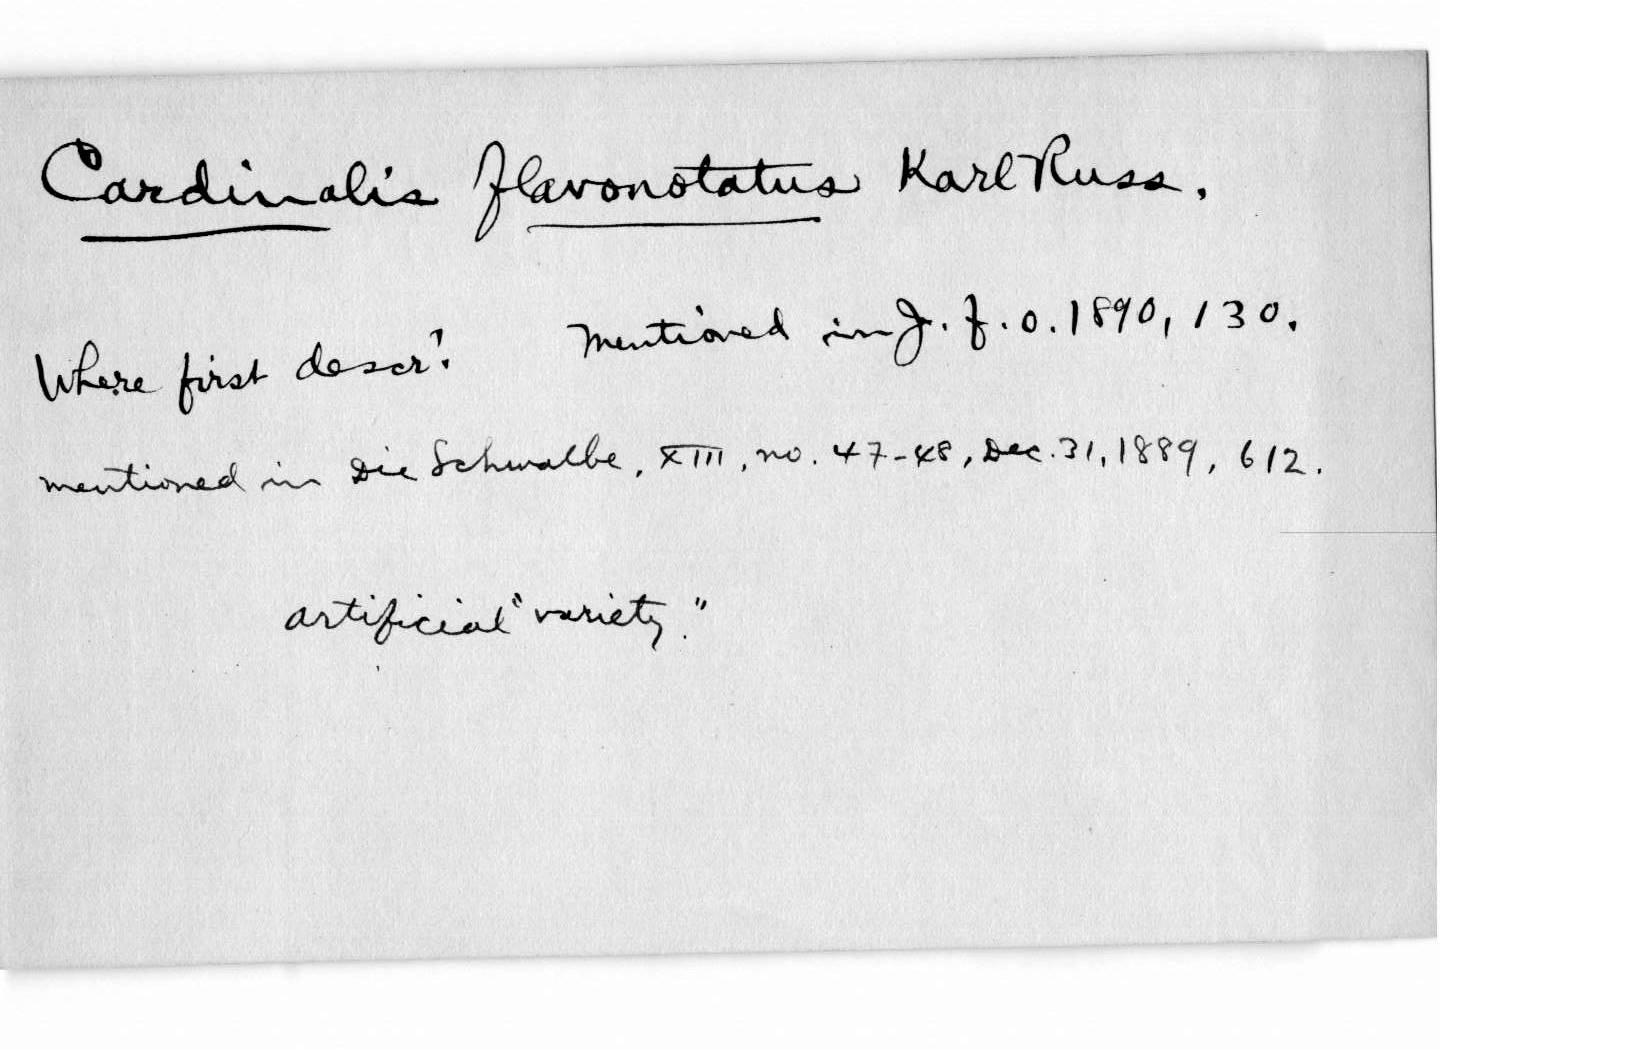 Cardinalis flavonotatus Karl Russ.
Where first descr? Mentioned in J. f. O. 1890, 130.
mentioned in Die Schwalbe, XIII, no. 47-48, Dec. 31, 1889, 612.
artificial "variety."